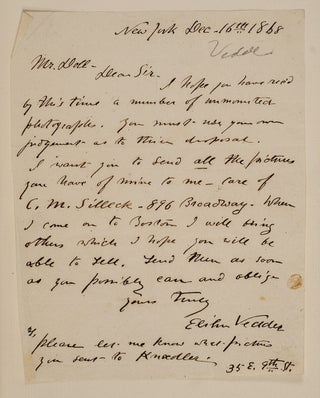 New York Dec - 16th 1868
Vedder
Mr. Doll -
Dear Sir.
I hope you have rec'd
by this time a number of unmounted
photographs. You must use your own
judgement as to their disposal.
I want you to send all the pictures
you have of mine to me - care of
C. M. Silleck - 896 Broadway. When
I come on to Boston I will bring
others which I hope you will be
able to sell. Send them as soon
as you possibly can and oblige
yours truly
Elihu Vedder
please let me know what pictures
you sent to Knoedler.
35 E. 9th St.